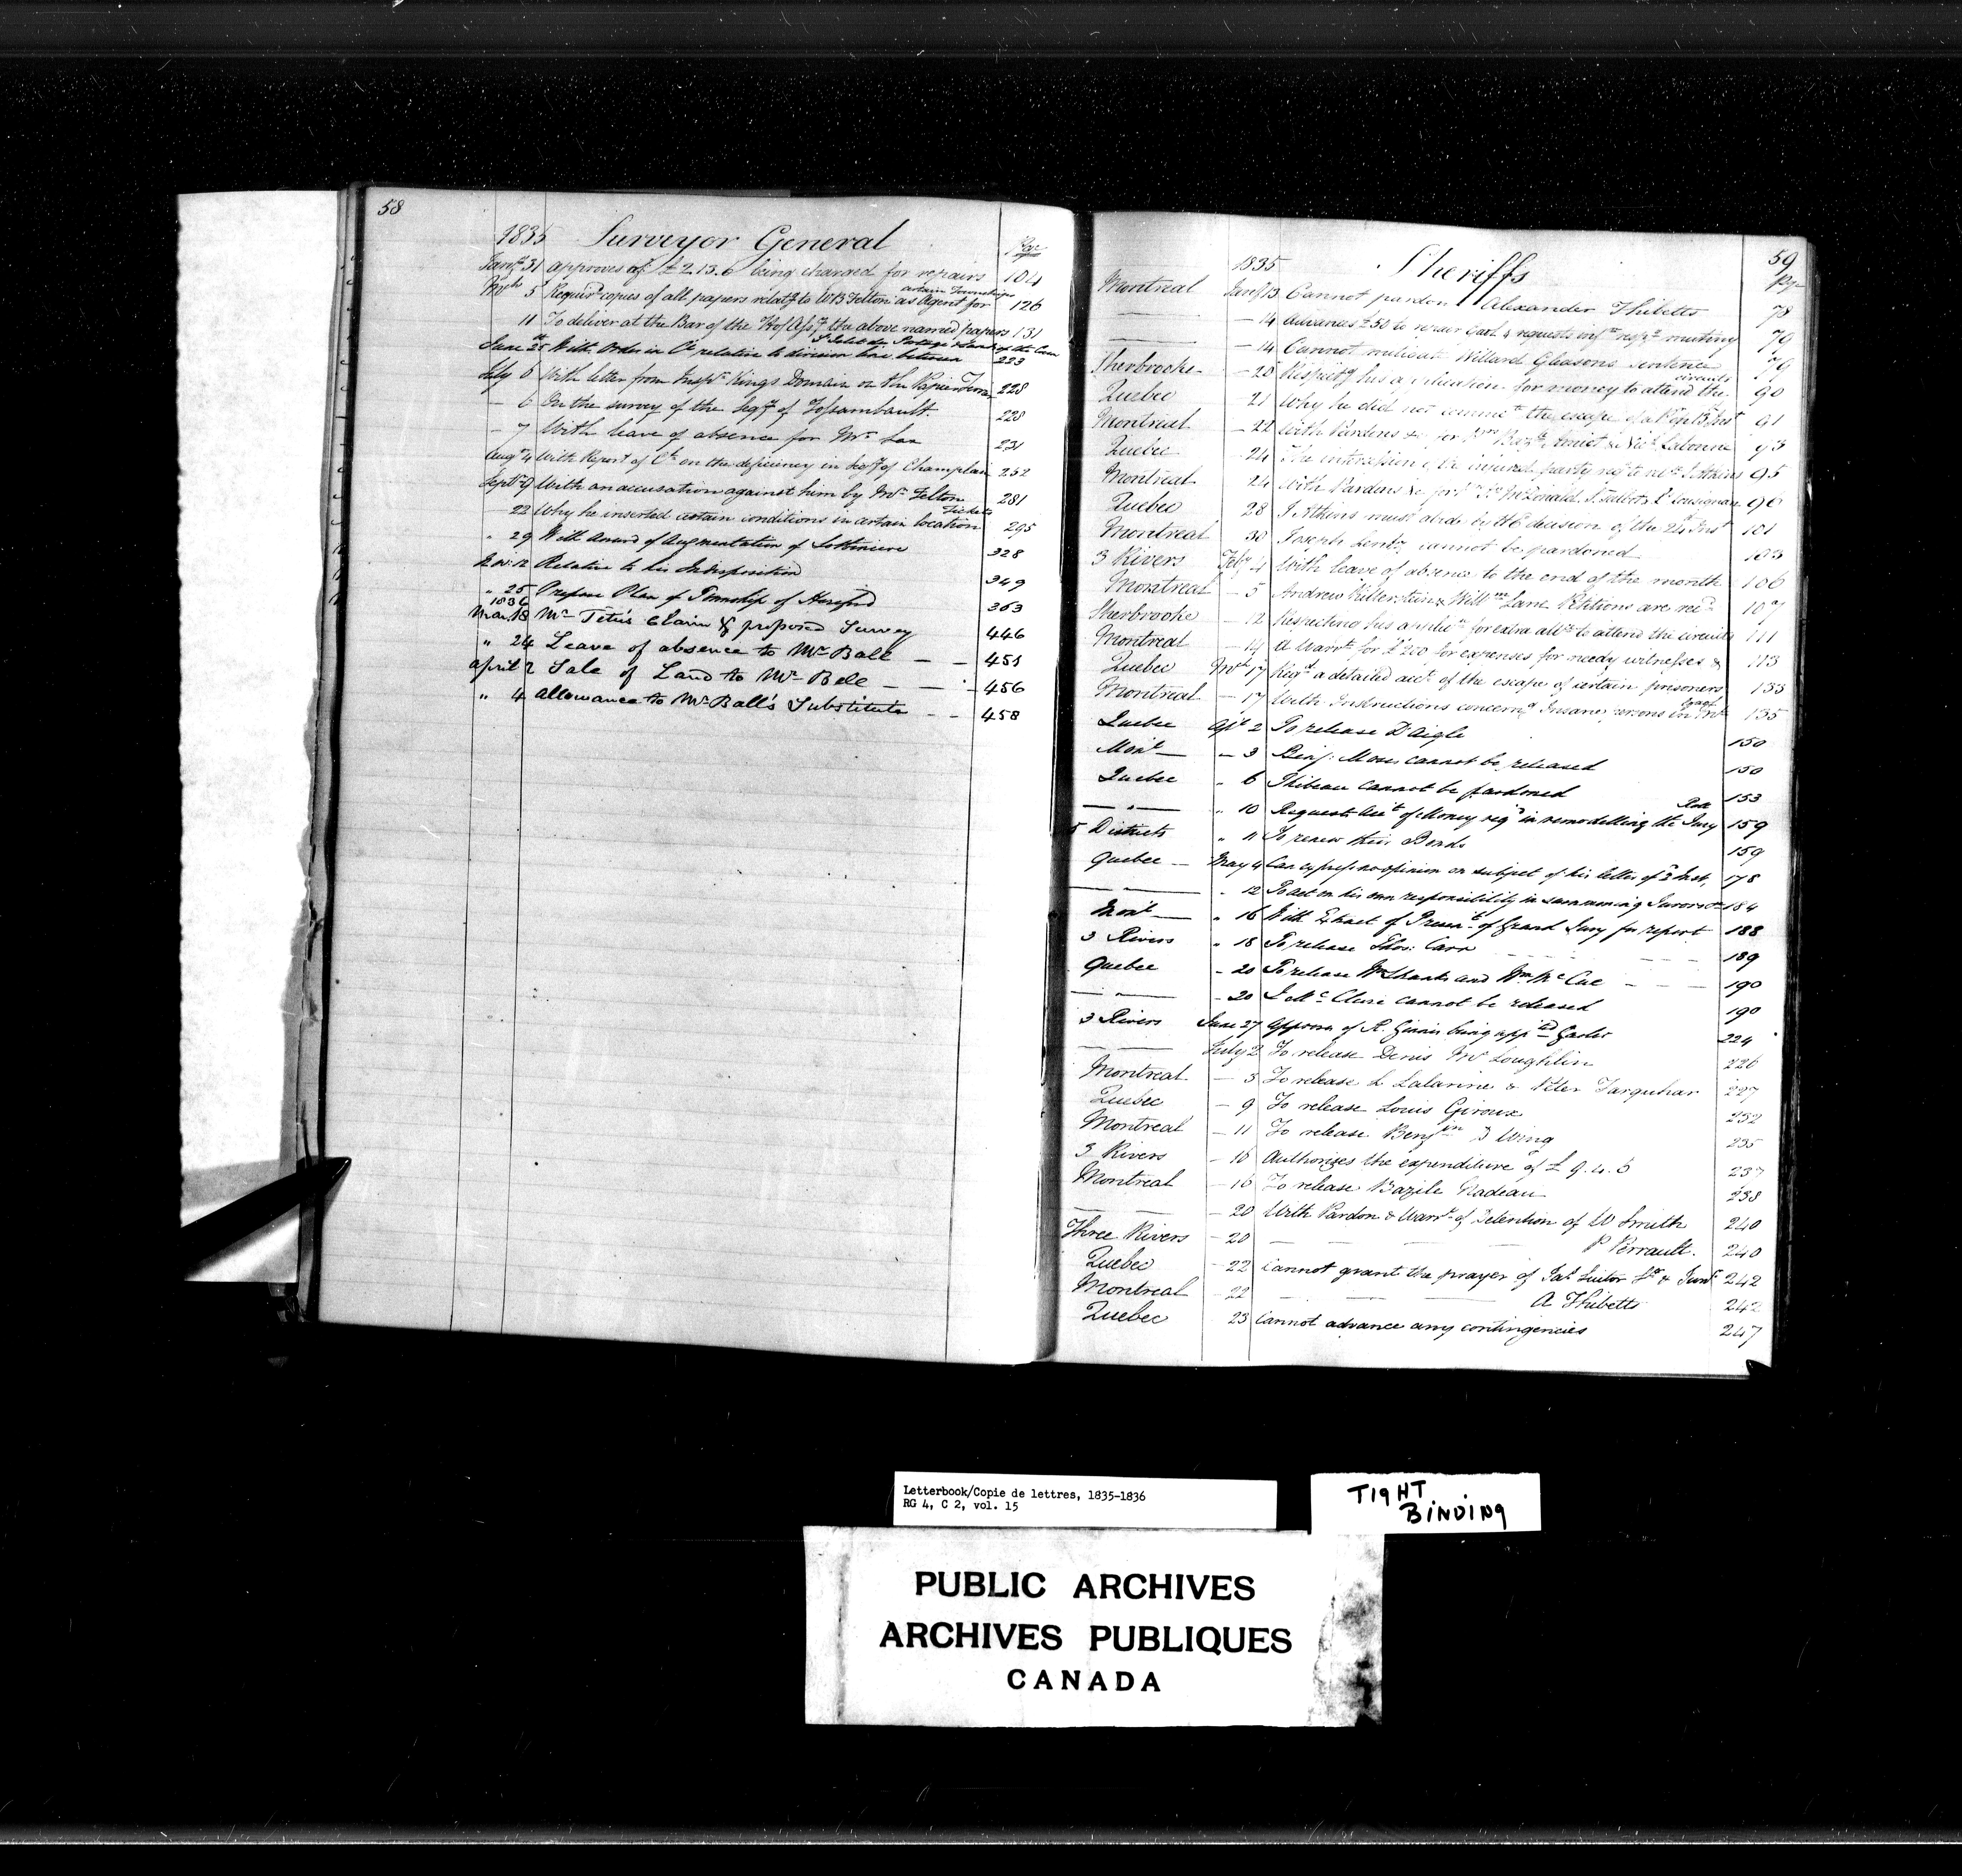 58
1835 Surveyor General Page
Jany 31 approves of £2.13.6 being charged for repairs 104
certain Townships
Mch 5 Requirg copies of all papers relatg to W B Felton as Agent for 126
11 To deliver at the Bar of the H of Assy the above named papers 131
June 25 With Order in Cl relative to division line between 223
July 6 With letter from Inspr Kings Domain on the Papier Terrier 228
- 6 On the survey of the Seigy of Fossambault 228
- 7 With leave of absence for Mr 231
Augt 4 With Report of Cl on the deficiency in Seigy of Champlain 252
Septr 9 With an accusation against him by Mr Felton 281
Tickets
- 22 Why he inserted certain conditions in certain location 295
" 29 With Amend of Augmentation of Lotbiniere 328
Nov: 12 Relative to his Indisposition 349
" 25 Prepare Plan of Township of Hereford 363
1836
Mar. 18 Mr Tetu's Claim & proposed Survey 446
" 24 Leave of absence to Mr Ball - - 451
April 2 Sale of Land to Mr Bell - - - 456
" 4 Allowance to Mr Ball's Substitute - - 458
59
1835 Sheriffs Page
Montreal Jany 13 Cannot pardon Alexander Thibetts 78
— - 14 Advances £50 to repair Gaol & requests infn respg mutiny 79
— - 14 Cannot mitigate Willard Gleasons sentence 79
circuits
Sherbrooke - 20 Respectg his application for money to attend the 90
Quebec 21 Why he did not commte the escape of a Pr on 15 Inst 91
Montreal - 22 With Pardons &c for Amiot & Labonne 93
Quebec - 24 The intercession of the injured party to J. Atkins 95
Montreal 24 With Pardons &c for McDonald, J. Talbot, Lusignan 96
Quebec 28 J. Atkins must abide by the decision of the 24 Inst 101
Montreal 30 Joseph cannot be pardoned 103
3 Rivers Feby 4 With leave of absence to the end of the month 106
Montreal - 5 Andrew & Willm Lane Petitions are recd 107
Sherbrooke - 12 Respecting his applicn for extra allce to attend the circuits 111
Montreal - 14 A Warrt for £200 for expenses for needy witnesses & 113
Quebec Mch 17 Reqg a detailed acct of the escape of certain prisoners 133
Montreal - 17 With Instructions concerng Insane persons in Mtl Gaol 135
Quebec Apl 2 To release D'Aigle 150
Mont - 3 Benj: Moses cannot be released 150
Quebec " 6 Thibeau cannot be pardoned 153
— " — " 10 Requests Acct of Money reqd in remodelling the Jury Room 159
5 Districts " 11 To renew their Bonds 159
Quebec — May 4 Can express no opinion on subject of his letter of 2 Inst, 178
— — " 12 To act on his own responsibility in summoning Jurors &c 184
Mont — " 16 With Extract of Presentt of Grand Jury for report 188
3 Rivers " 18 To release Thos: Carr 189
Quebec - 20 To release Wm Shanks and Wm McCue - - - 190
— " — - 20 J. McClure cannot be released 190
3 Rivers June 27 Approves of R. Ginnis being appd Gaoler 224
— — July 2 To release Denis McLoughlin 226
Montreal - 3 To release L Lalavine & Peter Farquhar 227
Quebec - 9 To release Louis Giroux 232
Montreal - 11 To release Benjin D Wing 235
3 Rivers - 16 Authorizes the expenditure of £9.4.6 237
Montreal - 16 To release Bazile Nadeau 238
— — - 20 With Pardon & Warrt of Detention of W Smith 240
Three Rivers - 20 — — — P Perrault. 240
Quebec - 22 Cannot grant the prayer of Jas Suitor Sr & Junr 242
Montreal - 22 — — — A Thibetts 242
Quebec 23 Cannot advance any contingencies 247
Letterbook/Copie de lettres, 1835-1836
RG 4, C 2, vol. 15
TIGHT
BINDING
PUBLIC ARCHIVES
ARCHIVES PUBLIQUES
CANADA